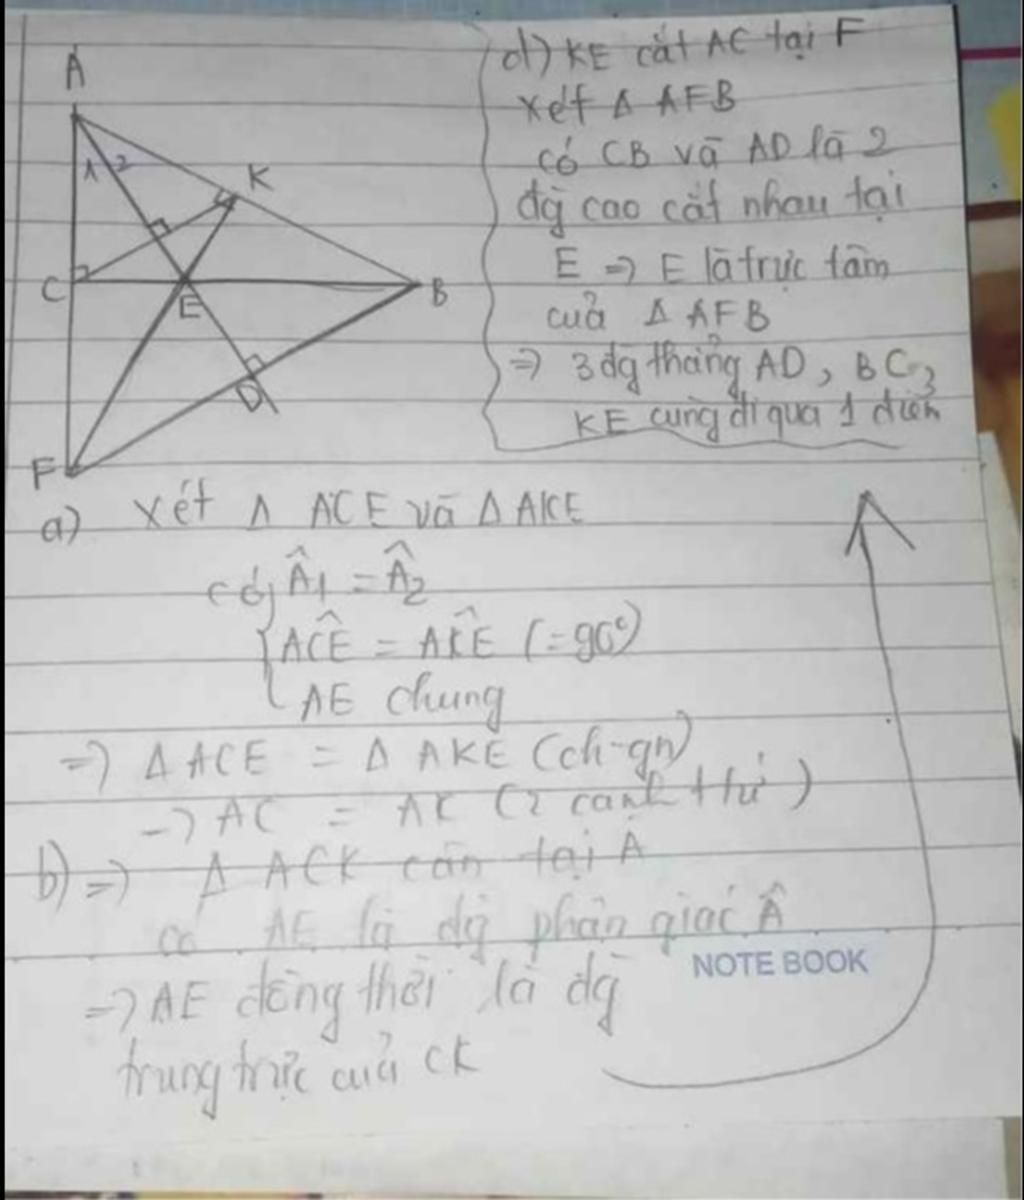 A
1 2
K
C
E
B
D
F
d) KE cắt AC tại F
xét Δ AFB
có CB và AD là 2
đg cao cắt nhau tại
E => E là trực tâm
của Δ AFB
=> 3 đg thẳng AD, BC,
KE cùng đi qua 1 điểm
a) xét Δ ACE và Δ AKE
có, Â1 = Â2
AĈE = AK̂E (= 90°)
AE chung
=> Δ ACE = Δ AKE (ch-gn)
-> AC = AK (2 cạnh tứ)
b) => Δ ACK cân tại A
có AE là đg phân giác Â
NOTE BOOK
=> AE đồng thời là đg
trung trực của CK